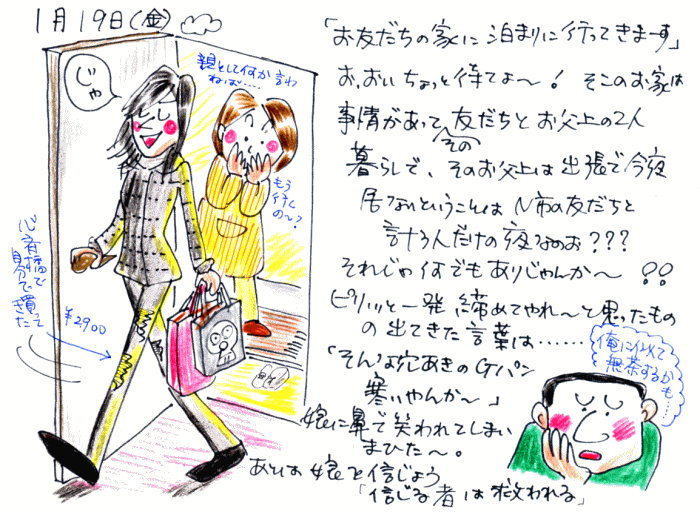 1月19日(金)
じゃ
親として何か言わ
ねば……
もう
行く
の〜?
心斎橋で
自分で買って
きた
¥2900
「お友だちの家に泊まりに行ってきまーす」
お、おい ちょっと待てよ〜! そこのお家は
事情があって、友だちとお父上の2人
その
暮らしで、そのお父上は出張で今夜
居ないということは N市の友だちと
計3人だけの夜なのお???
それじゃ何でもありじゃんか〜 !!
ピリリッと一発 締めてやれ〜と思ったもの
の出てきた言葉は……
「そんな穴あきのGパン
寒いやんか〜」
娘に鼻で笑われてしまい
まひた〜。
あとは娘を信じよう
「信じる者は救われる」
俺に似て
無茶するか
も…